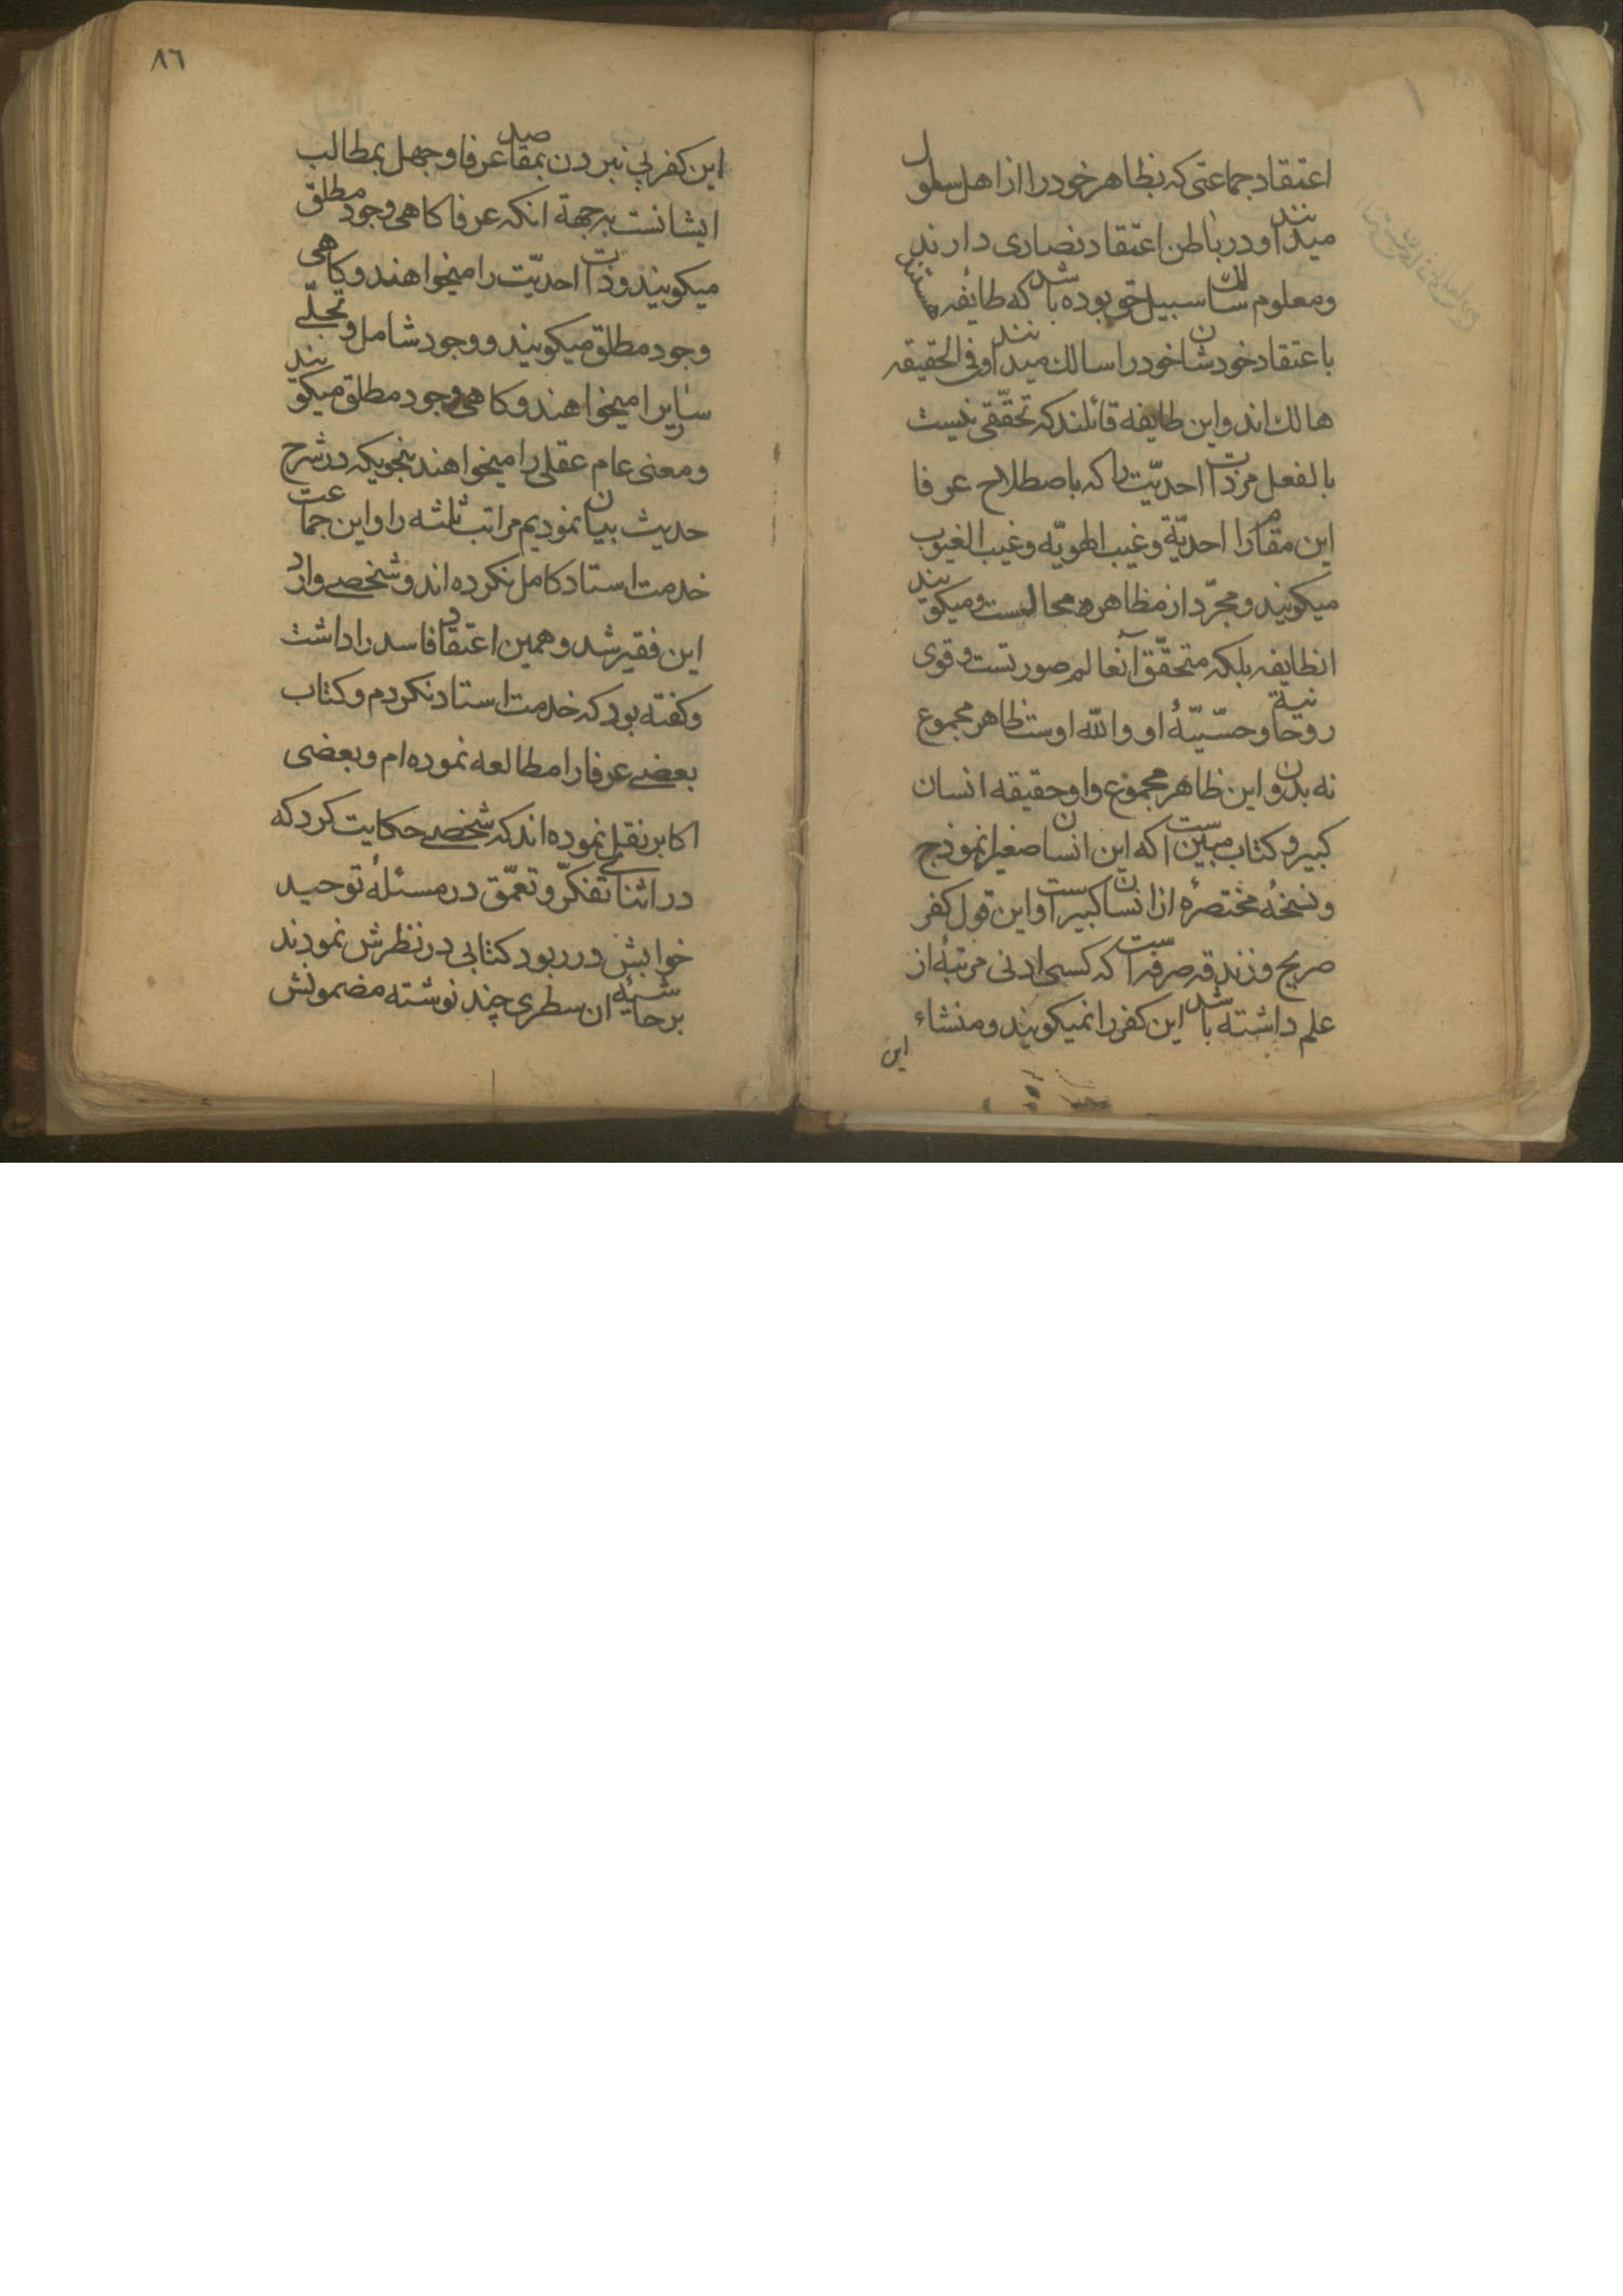 اعتقاد جماعتی که بظاهر خود را از اهل سلوک
میدانند و در باطن اعتقاد نصاری دارند
ومعلوم سالک سبیل حق بوده باشد که طائفه هستند
باعتقاد خودشان خود را سالک میدانند و فی الحقیقه
هالك اند و این طایفه قائلند که تحققی نیست
بالفعل مر ذات احدیّت را که باصطلاح عرفا
این مقام را احدیّة و غیب الهویّه و غیب الغیوب
میکویند و مجرّد از مظاهره محالست و میکویند
انطایفه بلکه متحقّق آنعالم صورتست و قوی
روحانیة و حسّیّهٔ او و اللّه اوست ظاهر مجموع
نه بدون این ظاهر مجموع و او حقیقه انسان
کبیر و کتاب مبین است که این انسان صغیر انموذج
و نسخهٔ مختصرهٔ از انسان کبیر است و این قول کفر
صریح و زندقه صرفه است که کسی ادنی مرتبهٔ از
علم داشته باشد این کفر را نمیکویند و منشاء
این
٨٦
این کفر پی نبردن بمقاصد عرفا و جهل بمطالب
ایشانست بر جهة انکه عرفا کاهی وجود مطلق
میکویند و ذات احدیّت را میخواهند و کاهی
وجود مطلق میکویند و وجود شامل و تجلّی
ساری را میخواهند و کاهی وجود مطلق میکویند
و معنی عام عقلی را میخواهند بنحویکه در شرح
حدیث بیان نمودیم مراتب ثلثه را و این جماعت
خدمت استاد کامل نکرده اند و شخصی وارد
این فقیر شد و همین اعتقاد فاسد را داشت
و کفته بود که خدمت استاد نکردم و کتاب
بعضی عرفا را مطالعه نموده ام و بعضی
اکابر نقل نموده اند که شخصی حکایت کرد که
در اثنای تفکّر و تعمّق در مسئلهٔ توحید
خوابش در ربود کتابی در نظرش نمودند
بر حاشیهٔ ان سطری چند نوشته مضمونش